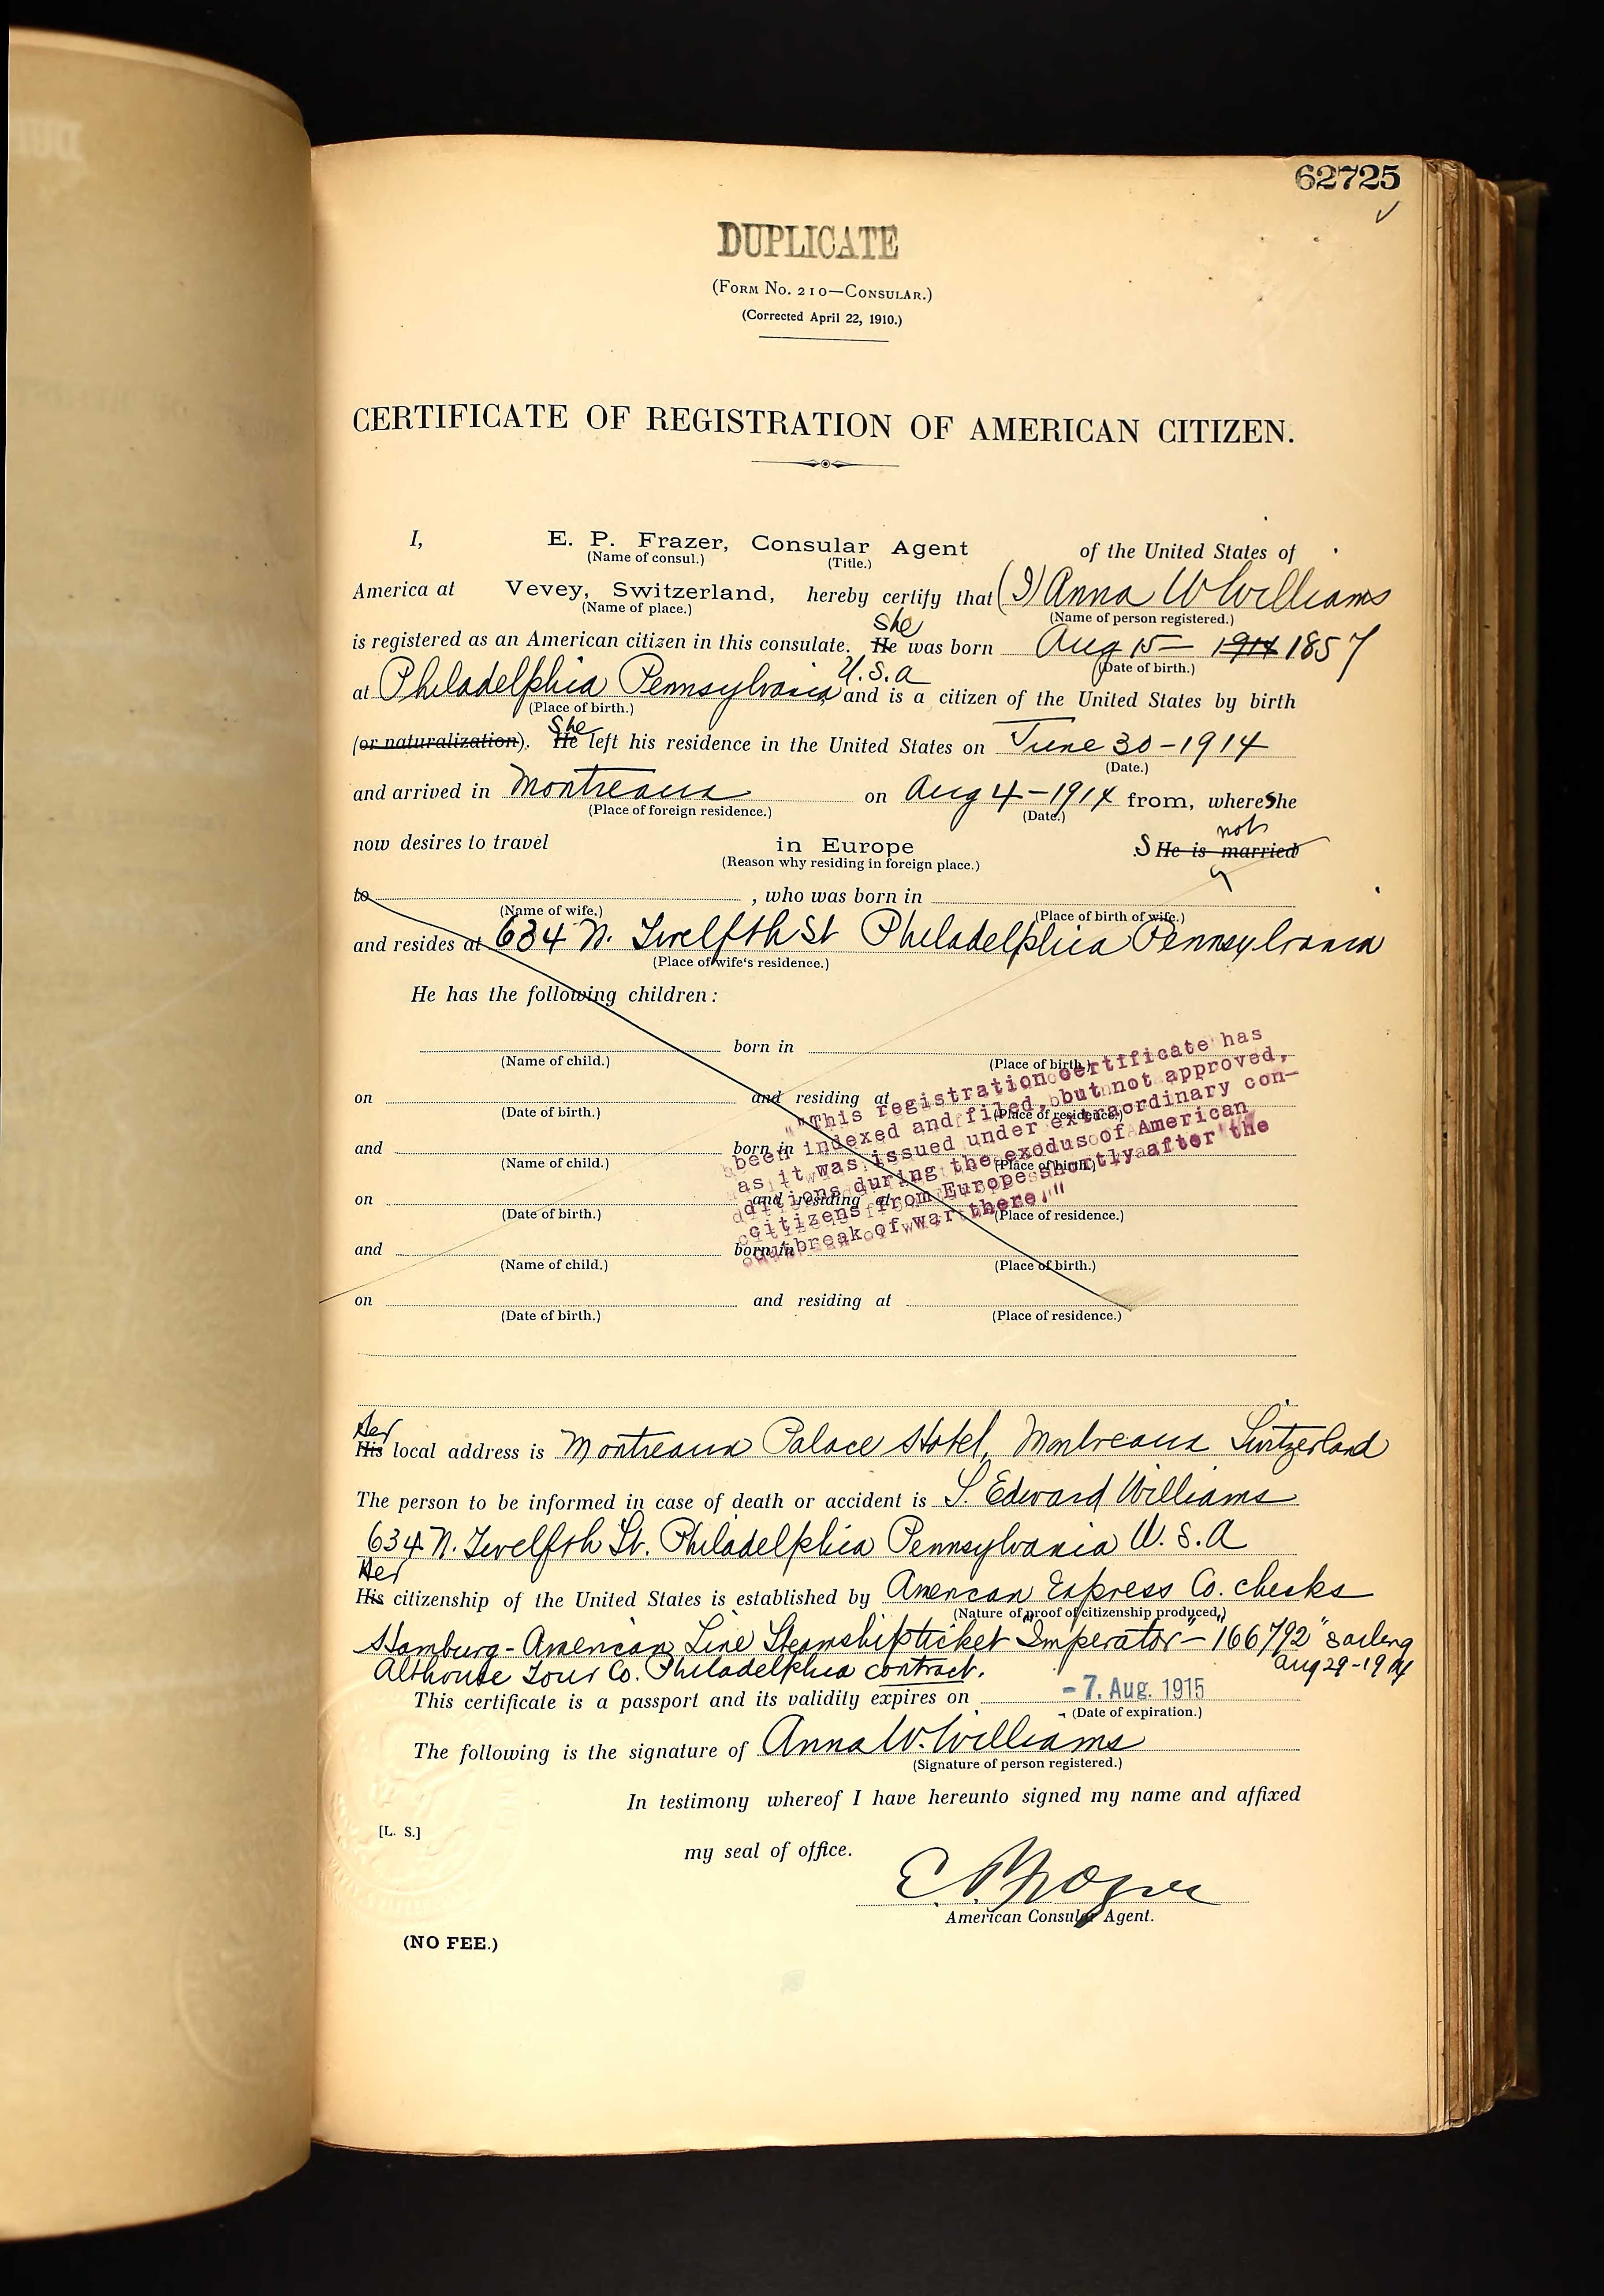 62725
DUPLICATE
(FORM NO. 210—CONSULAR.)
(Corrected April 22, 1910.)
CERTIFICATE OF REGISTRATION OF AMERICAN CITIZEN.
I, E. P. Frazer, Consular Agent of the United States of
(Name of consul.) (Title.)
America at Vevey, Switzerland, hereby certify that (I) Anna W Williams
(Name of place.) (Name of person registered.)
She
is registered as an American citizen in this consulate. He was born Aug 15 — 1914 1857
(Date of birth.)
U.S.A
at Philadelphia Pennsylvania and is a citizen of the United States by birth
(Place of birth.)
She
(or naturalization). He left his residence in the United States on June 30 - 1914
(Date.)
and arrived in Montreaux on Aug 4 - 1914 from, where She
(Place of foreign residence.) (Date.)
not
now desires to travel in Europe S He is married
(Reason why residing in foreign place.)
to , who was born in
(Name of wife.) (Place of birth of wife.)
and resides at 634 N. Twelfth St Philadelphia Pennsylvania
(Place of wife's residence.)
He has the following children:
born in
(Name of child.) (Place of birth.)
on and residing at
(Date of birth.) (Place of residence.)
and born in
(Name of child.) (Place of birth.)
on and residing at
(Date of birth.) (Place of residence.)
and born in
(Name of child.) (Place of birth.)
on and residing at
(Date of birth.) (Place of residence.)
"This registration certificate has
been indexed and filed, but not approved,
as it was issued under extraordinary con-
ditions during the exodus of American
citizens from Europe shortly after the
outbreak of war there."
Her
His local address is Montreaux Palace Hotel, Montreaux Switzerland
The person to be informed in case of death or accident is S. Edward Williams
634 N. Twelfth St. Philadelphia Pennsylvania U.S.A
Her
His citizenship of the United States is established by American Express Co. checks
(Nature of proof of citizenship produced.)
Hamburg-American Line Steamship ticket "Imperator" - 166792 "sailing
Aug 29 - 1914
Althouse Tour Co. Philadelphia contract.
This certificate is a passport and its validity expires on - 7. Aug. 1915
(Date of expiration.)
The following is the signature of Anna W. Williams
(Signature of person registered.)
In testimony whereof I have hereunto signed my name and affixed
[L. S.]
my seal of office.
E. P. Frazer
American Consular Agent.
(NO FEE.)